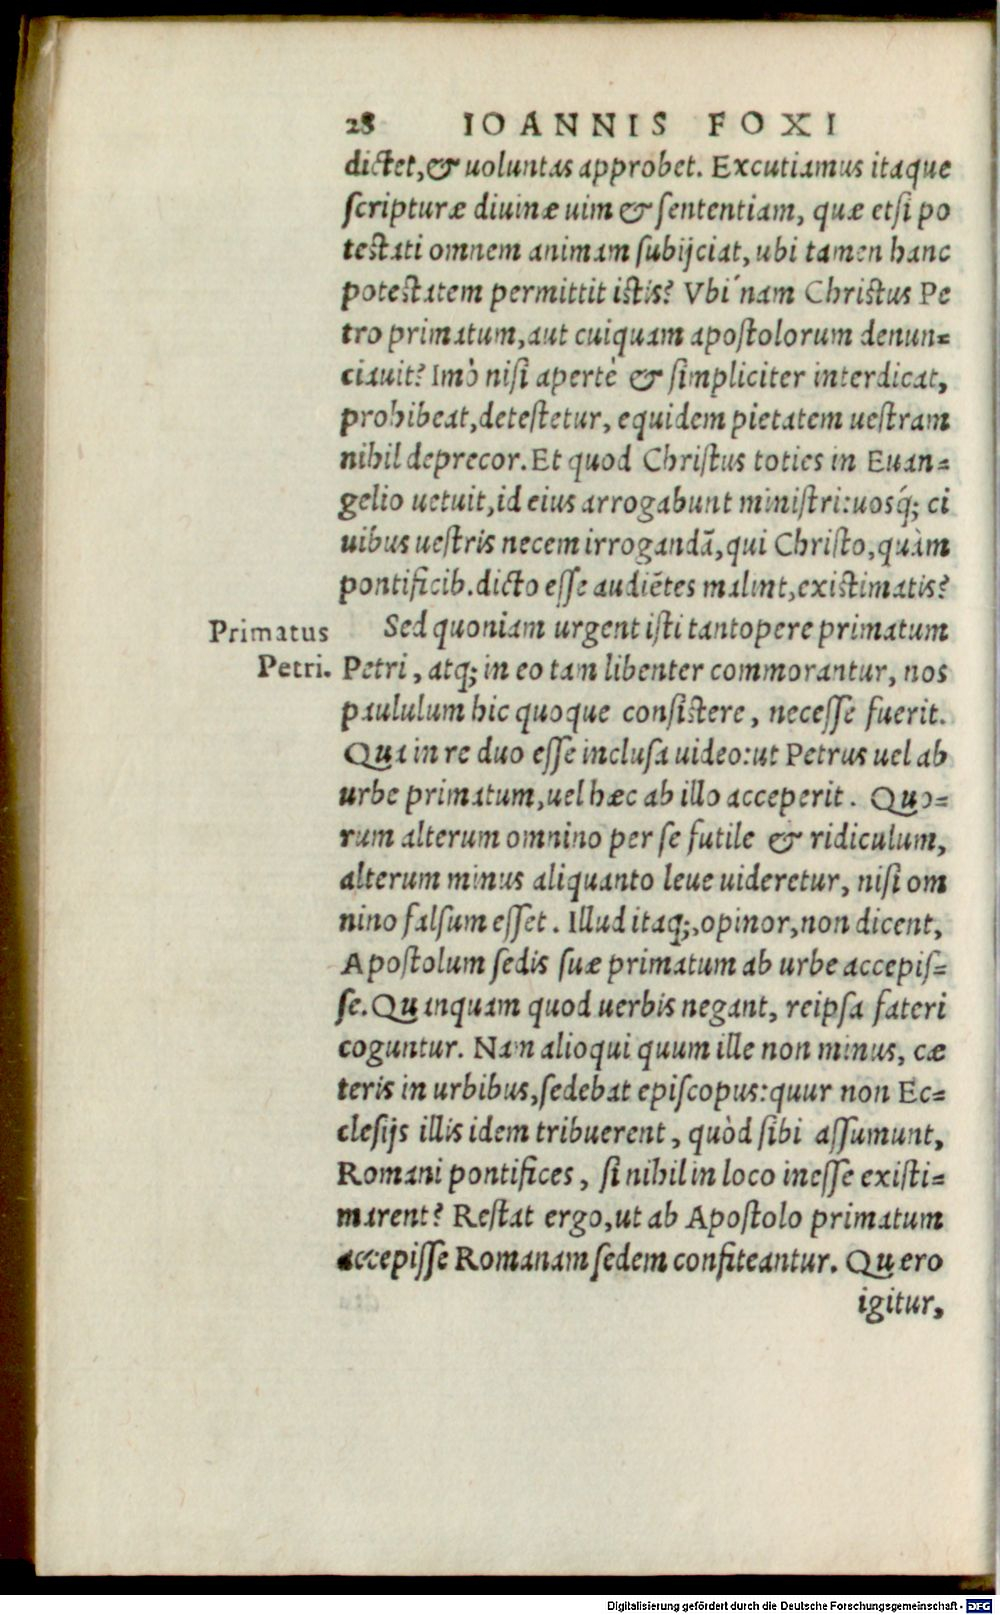 28 IOANNIS FOXI
dictet, & uoluntas approbet. Excutiamus itaque
scripturæ diuinæ uim & sententiam, quæ etsi po
testati omnem animam subijciat, ubi tamen hanc
potestatem permittit istis? Vbi´nam Christus Pe
tro primatum, aut cuiquam apostolorum denun=
ciauit? Imò nisi apertè & simpliciter interdicat,
prohibeat, detestetur, equidem pietatem uestram
nihil deprecor. Et quod Christus toties in Euan=
gelio uetuit, id eius arrogabunt ministri: uosq́; ci
uibus uestris necem irrogandã, qui Christo, quàm
pontificib. dicto esse audiẽtes malint, existimatis?
Primatus
Petri.
Sed quoniam urgent isti tantopere primatum
Petri, atq; in eo tam libenter commorantur, nos
paululum hic quoque consistere, necesse fuerit.
Qua in re duo esse inclusa uideo: ut Petrus uel ab
urbe primatum, uel hæc ab illo acceperit. Quo=
rum alterum omnino per se futile & ridiculum,
alterum minus aliquanto leue uideretur, nisi om
nino falsum esset. Illud itaq;, opinor, non dicent,
Apostolum sedis suæ primatum ab urbe accepis=
se. Quanquam quod uerbis negant, reipsa fateri
coguntur. Nam alioqui quum ille non minus, cæ
teris in urbibus, sedebat episcopus: quur non Ec=
clesijs illis idem tribuerent, quòd sibi assumunt,
Romani pontifices, si nihil in loco inesse existi=
marent? Restat ergo, ut ab Apostolo primatum
accepisse Romanam sedem confiteantur. Quero
igitur,
Digitalisierung gefördert durch die Deutsche Forschungsgemeinschaft - DFG